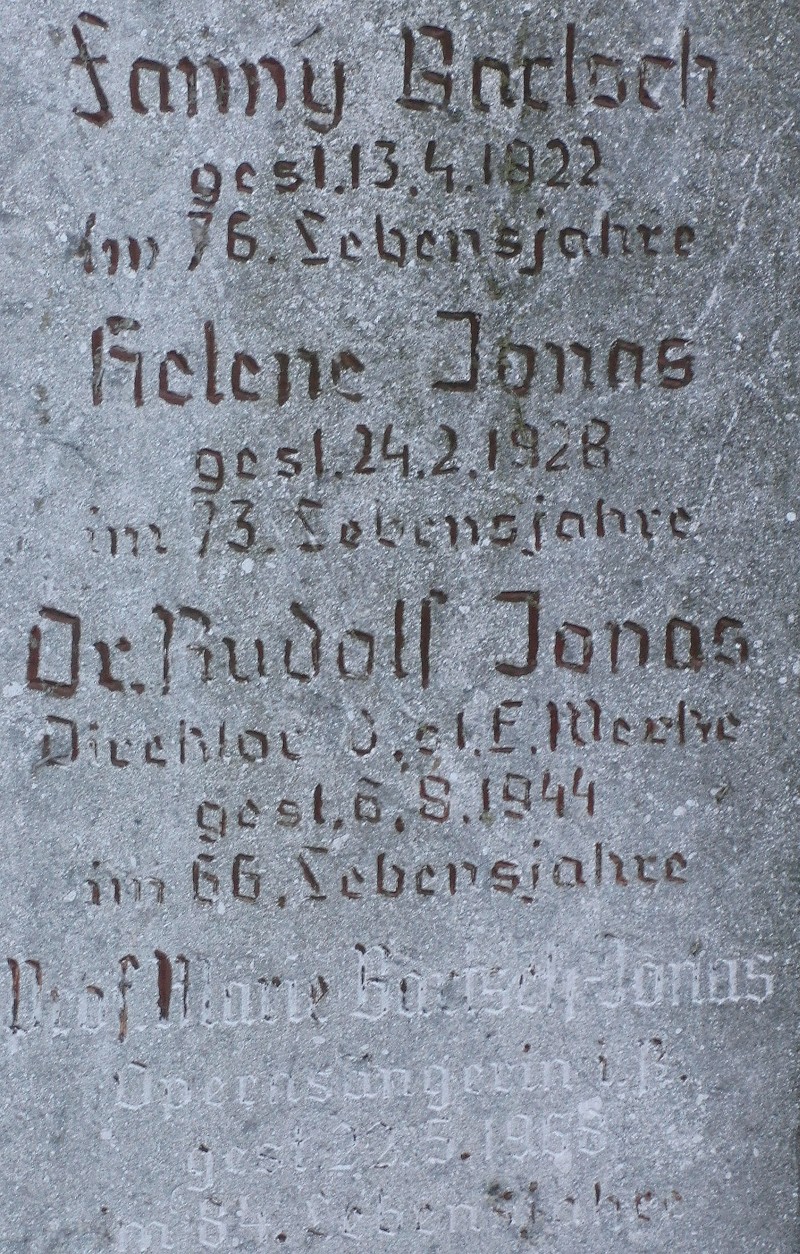 Fanny Bartsch
gest.13.4.1922
im 76. Lebensjahre
Helene Jonas
gest.24.2.1928
im 73. Lebensjahre
Dr. Rudolf Jonas
Direktor d. st. E. Werke
gest. 6. 8. 1944
im 66. Lebensjahre
Prof. Marie Bartsch-Jonas
Opernsängerin i. R.
gest 22.5.1958
im 84. Lebensjahre